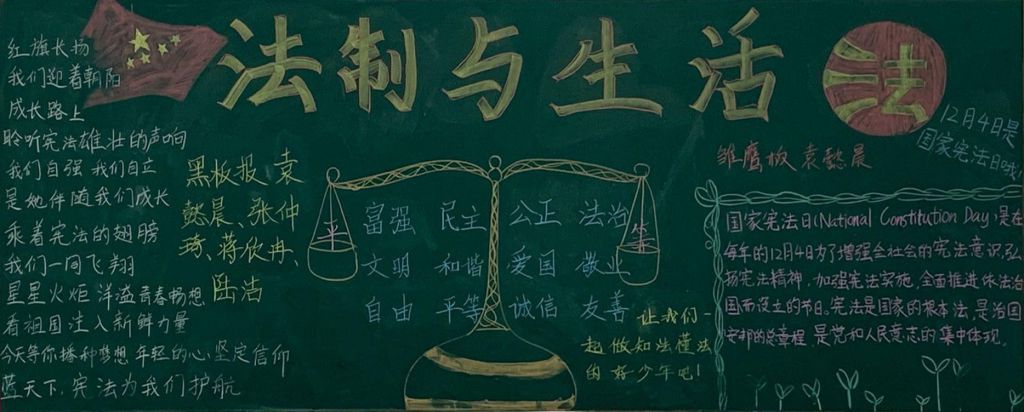 法制与生活
法
红旗长扬
我们迎着朝阳
成长路上
聆听宪法雄壮的声响
我们自强 我们自立
是她伴随我们成长
乘着宪法的翅膀
我们一同飞翔
星星火炬 洋溢青春畅想
看祖国注入新鲜力量
今天等你播种梦想 年轻的心坚定信仰
蓝天下,宪法为我们护航
黑板报、袁
懿晨、张仲
琦、蒋欣冉、
陆洁
平
等
富强 民主 公正 法治
文明 和谐 爱国 敬业
自由 平等 诚信 友善
让我们一
起做知法懂法
的好少年吧!
雏鹰版 袁懿晨
12月4日是
国家宪法日哦!
国家宪法日(National Constitution Day)是在
每年的12月4日为了增强全社会的宪法意识,弘
扬宪法精神,加强宪法实施,全面推进依法治
国而设立的节日。宪法是国家的根本法,是治国
安邦的总章程,是党和人民意志的集中体现。